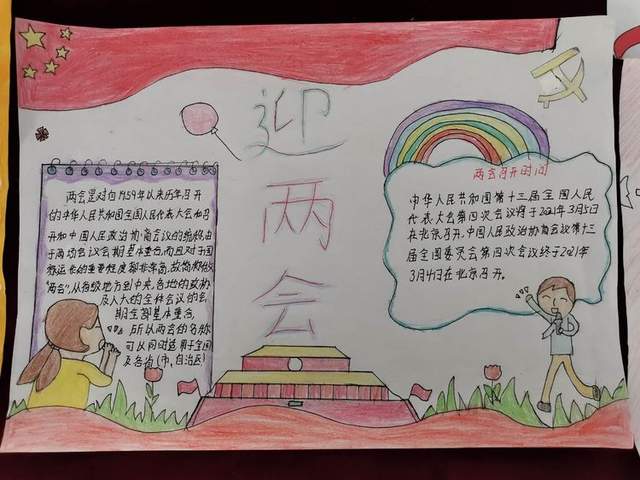 迎两会
两会是对自1959年以来历年召开
的中华人民共和国全国人民代表大会和召
开和中国人民政治协商会议的统称由
于两场会议会期基本重合,而且对于国
家运长的重要程度都非常高,故简称做
“两会”从省级地方到中央,各地的政协
及人大的全体会议的会
期全部基本重合,
所以两会的名称
可以同时适用于全国
及各省(市、自治区)
两会召开时间
中华人民共和国第十三届全国人民
代表大会第四次会议将于2021年3月5日
在北京召开.中国人民政治协商会议第十三
届全国委员会第四次会议终于2021年
3月4日在北京召开。